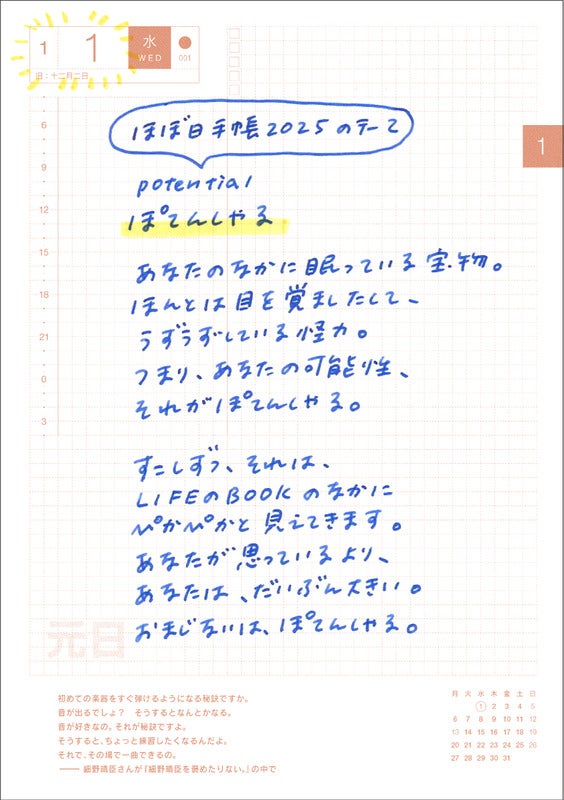 1
1
水
WED
001
旧：十二月二日
1
ほぼ日手帳2025のテーマ
potential
ぽてんしゃる
あなたのなかに眠っている宝物。
ほんとは目を覚ましたして、
うずうずしている怪力。
つまり、あなたの可能性、
それがぽてんしゃる。
すこしずつ、それは、
LIFEのBOOKのなかに
ぴかぴかと見えてきます。
あなたが思っているより、
あなたは、だいぶん大きい。
おまじないは、ぽてんしゃる。
6
9
12
15
18
21
0
3
元日
初めての楽器をすぐ弾けるようになる秘訣ですか。
音が出るでしょ？　そうするとなんとかなる。
音が好きなの。それが秘訣ですよ。
そうすると、ちょっと練習したくなるんだよ。
それで、その場で一曲できるの。
―― 細野晴臣さんが『細野晴臣を褒めたりない。』の中で
月 火 水 木 金 土 日
1 2 3 4 5
6 7 8 9 10 11 12
13 14 15 16 17 18 19
20 21 22 23 24 25 26
27 28 29 30 31